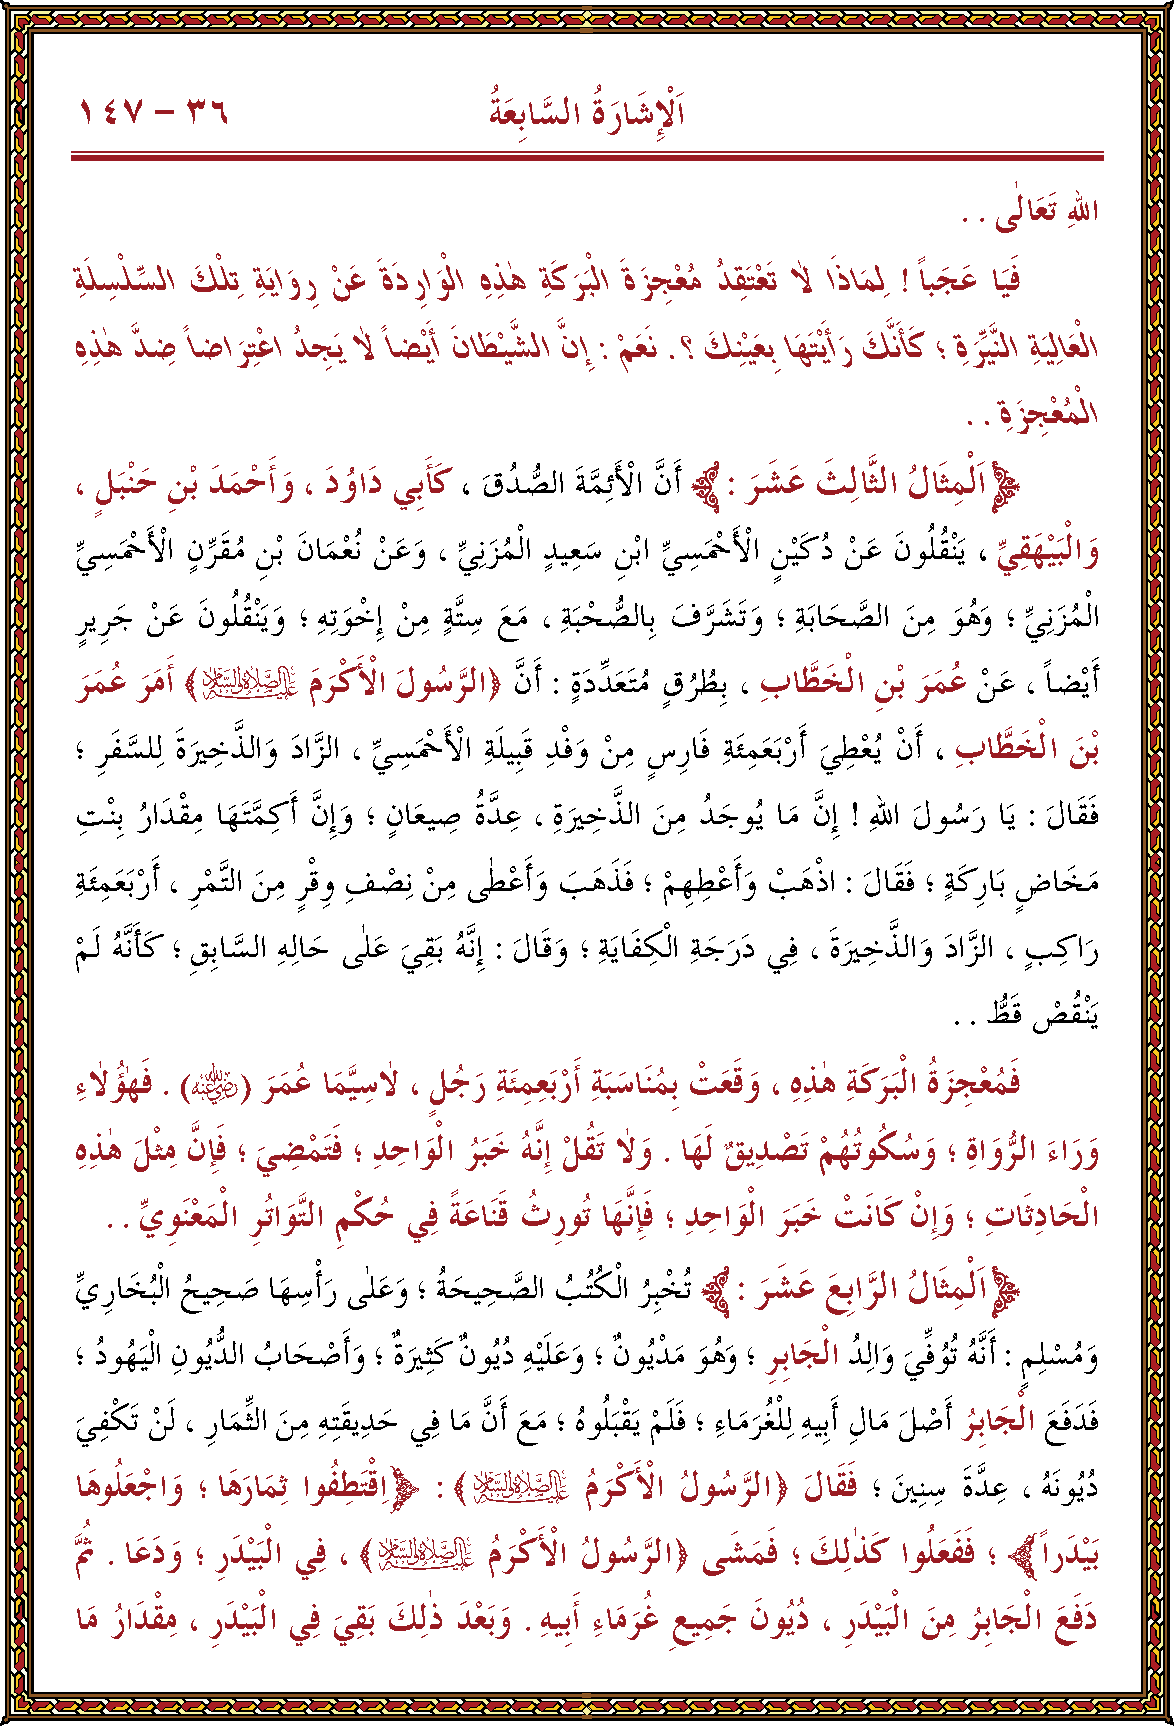 اَلْإِشَارَةُ السَّابِعَةُ ٣٦ – ١٤٧
اللهِ تَعَالٰى . .
فَيَا عَجَباً ! لِمَاذَا لَا تَعْتَقِدُ مُعْجِزَةَ الْبَرَكَةِ هٰذِهِ الْوَارِدَةَ عَنْ رِوَايَةِ تِلْكَ السِّلْسِلَةِ
الْعَالِيَةِ النَّيِّرَةِ ؛ كَأَنَّكَ رَأَيْتَهَا بِعَيْنِكَ ؟. نَعَمْ : إِنَّ الشَّيْطَانَ أَيْضاً لَا يَجِدُ اعْتِرَاضاً ضِدَّ هٰذِهِ
الْمُعْجِزَةِ . .
﴿اَلْمِثَالُ الثَّالِثَ عَشَرَ : ﴾ أَنَّ الْأَئِمَّةَ الصُّدُقَ ، كَأَبِي دَاوُدَ ، وَأَحْمَدَ بْنِ حَنْبَلٍ ،
وَالْبَيْهَقِيِّ ، يَنْقُلُونَ عَنْ دُكَيْنٍ الْأَحْمَسِيِّ ابْنِ سَعِيدٍ الْمُزَنِيِّ ، وَعَنْ نُعْمَانَ بْنِ مُقَرِّنٍ الْأَحْمَسِيِّ
الْمُزَنِيِّ ؛ وَهُوَ مِنَ الصَّحَابَةِ ؛ وَتَشَرَّفَ بِالصُّحْبَةِ ، مَعَ سِتَّةٍ مِنْ إِخْوَتِهِ ؛ وَيَنْقُلُونَ عَنْ جَرِيرٍ
أَيْضاً ، عَنْ عُمَرَ بْنِ الْخَطَّابِ ، بِطُرُقٍ مُتَعَدِّدَةٍ : أَنَّ ﴿الرَّسُولَ الْأَكْرَمَ عَلَيْهِ الصَّلَاةُ وَالسَّلَامُ﴾ أَمَرَ عُمَرَ
بْنَ الْخَطَّابِ ، أَنْ يُعْطِيَ أَرْبَعَمِئَةِ فَارِسٍ مِنْ وَفْدِ قَبِيلَةِ الْأَحْمَسِيِّ ، الزَّادَ وَالذَّخِيرَةَ لِلسَّفَرِ ؛
فَقَالَ : يَا رَسُولَ اللهِ ! إِنَّ مَا يُوجَدُ مِنَ الذَّخِيرَةِ ، عِدَّةُ صِيعَانٍ ؛ وَإِنَّ أَكِمَّتَهَا مِقْدَارُ بِنْتِ
مَخَاضٍ بَارِكَةٍ ؛ فَقَالَ : اذْهَبْ وَأَعْطِهِمْ ؛ فَذَهَبَ وَأَعْطٰى مِنْ نِصْفِ وِقْرٍ مِنَ التَّمْرِ ، أَرْبَعَمِئَةِ
رَاكِبٍ ، الزَّادَ وَالذَّخِيرَةَ ، فِي دَرَجَةِ الْكِفَايَةِ ؛ وَقَالَ : إِنَّهُ بَقِيَ عَلٰى حَالِهِ السَّابِقِ ؛ كَأَنَّهُ لَمْ
يَنْقُصْ قَطُّ . .
فَمُعْجِزَةُ الْبَرَكَةِ هٰذِهِ ، وَقَعَتْ بِمُنَاسَبَةِ أَرْبَعِمِئَةِ رَجُلٍ ، لَاسِيَّمَا عُمَرَ (رَضِيَ اللهُ عَنْهُ) . فَهٰؤُلَاءِ
وَرَاءَ الرُّوَاةِ ؛ وَسُكُوتُهُمْ تَصْدِيقٌ لَهَا . وَلَا تَقُلْ إِنَّهُ خَبَرُ الْوَاحِدِ ؛ فَتَمْضِيَ ؛ فَإِنَّ مِثْلَ هٰذِهِ
الْحَادِثَاتِ ؛ وَإِنْ كَانَتْ خَبَرَ الْوَاحِدِ ؛ فَإِنَّهَا تُورِثُ قَنَاعَةً فِي حُكْمِ التَّوَاتُرِ الْمَعْنَوِيِّ . .
﴿اَلْمِثَالُ الرَّابِعَ عَشَرَ : ﴾ تُخْبِرُ الْكُتُبُ الصَّحِيحَةُ ؛ وَعَلٰى رَأْسِهَا صَحِيحُ الْبُخَارِيِّ
وَمُسْلِمٍ : أَنَّهُ تُوُفِّيَ وَالِدُ الْجَابِرِ ؛ وَهُوَ مَدْيُونٌ ؛ وَعَلَيْهِ دُيُونٌ كَثِيرَةٌ ؛ وَأَصْحَابُ الدُّيُونِ الْيَهُودُ ؛
فَدَفَعَ الْجَابِرُ أَصْلَ مَالِ أَبِيهِ لِلْغُرَمَاءِ ؛ فَلَمْ يَقْبَلُوهُ ؛ مَعَ أَنَّ مَا فِي حَدِيقَتِهِ مِنَ الثِّمَارِ ، لَنْ تَكْفِيَ
دُيُونَهُ ، عِدَّةَ سِنِينَ ؛ فَقَالَ ﴿الرَّسُولُ الْأَكْرَمُ عَلَيْهِ الصَّلَاةُ وَالسَّلَامُ﴾ : ﴿اِقْتَطِفُوا ثِمَارَهَا ؛ وَاجْعَلُوهَا
بَيْدَراً﴾ ؛ فَفَعَلُوا كَذٰلِكَ ؛ فَمَشَى ﴿الرَّسُولُ الْأَكْرَمُ عَلَيْهِ الصَّلَاةُ وَالسَّلَامُ﴾ ، فِي الْبَيْدَرِ ؛ وَدَعَا . ثُمَّ
دَفَعَ الْجَابِرُ مِنَ الْبَيْدَرِ ، دُيُونَ جَمِيعِ غُرَمَاءِ أَبِيهِ . وَبَعْدَ ذٰلِكَ بَقِيَ فِي الْبَيْدَرِ ، مِقْدَارُ مَا